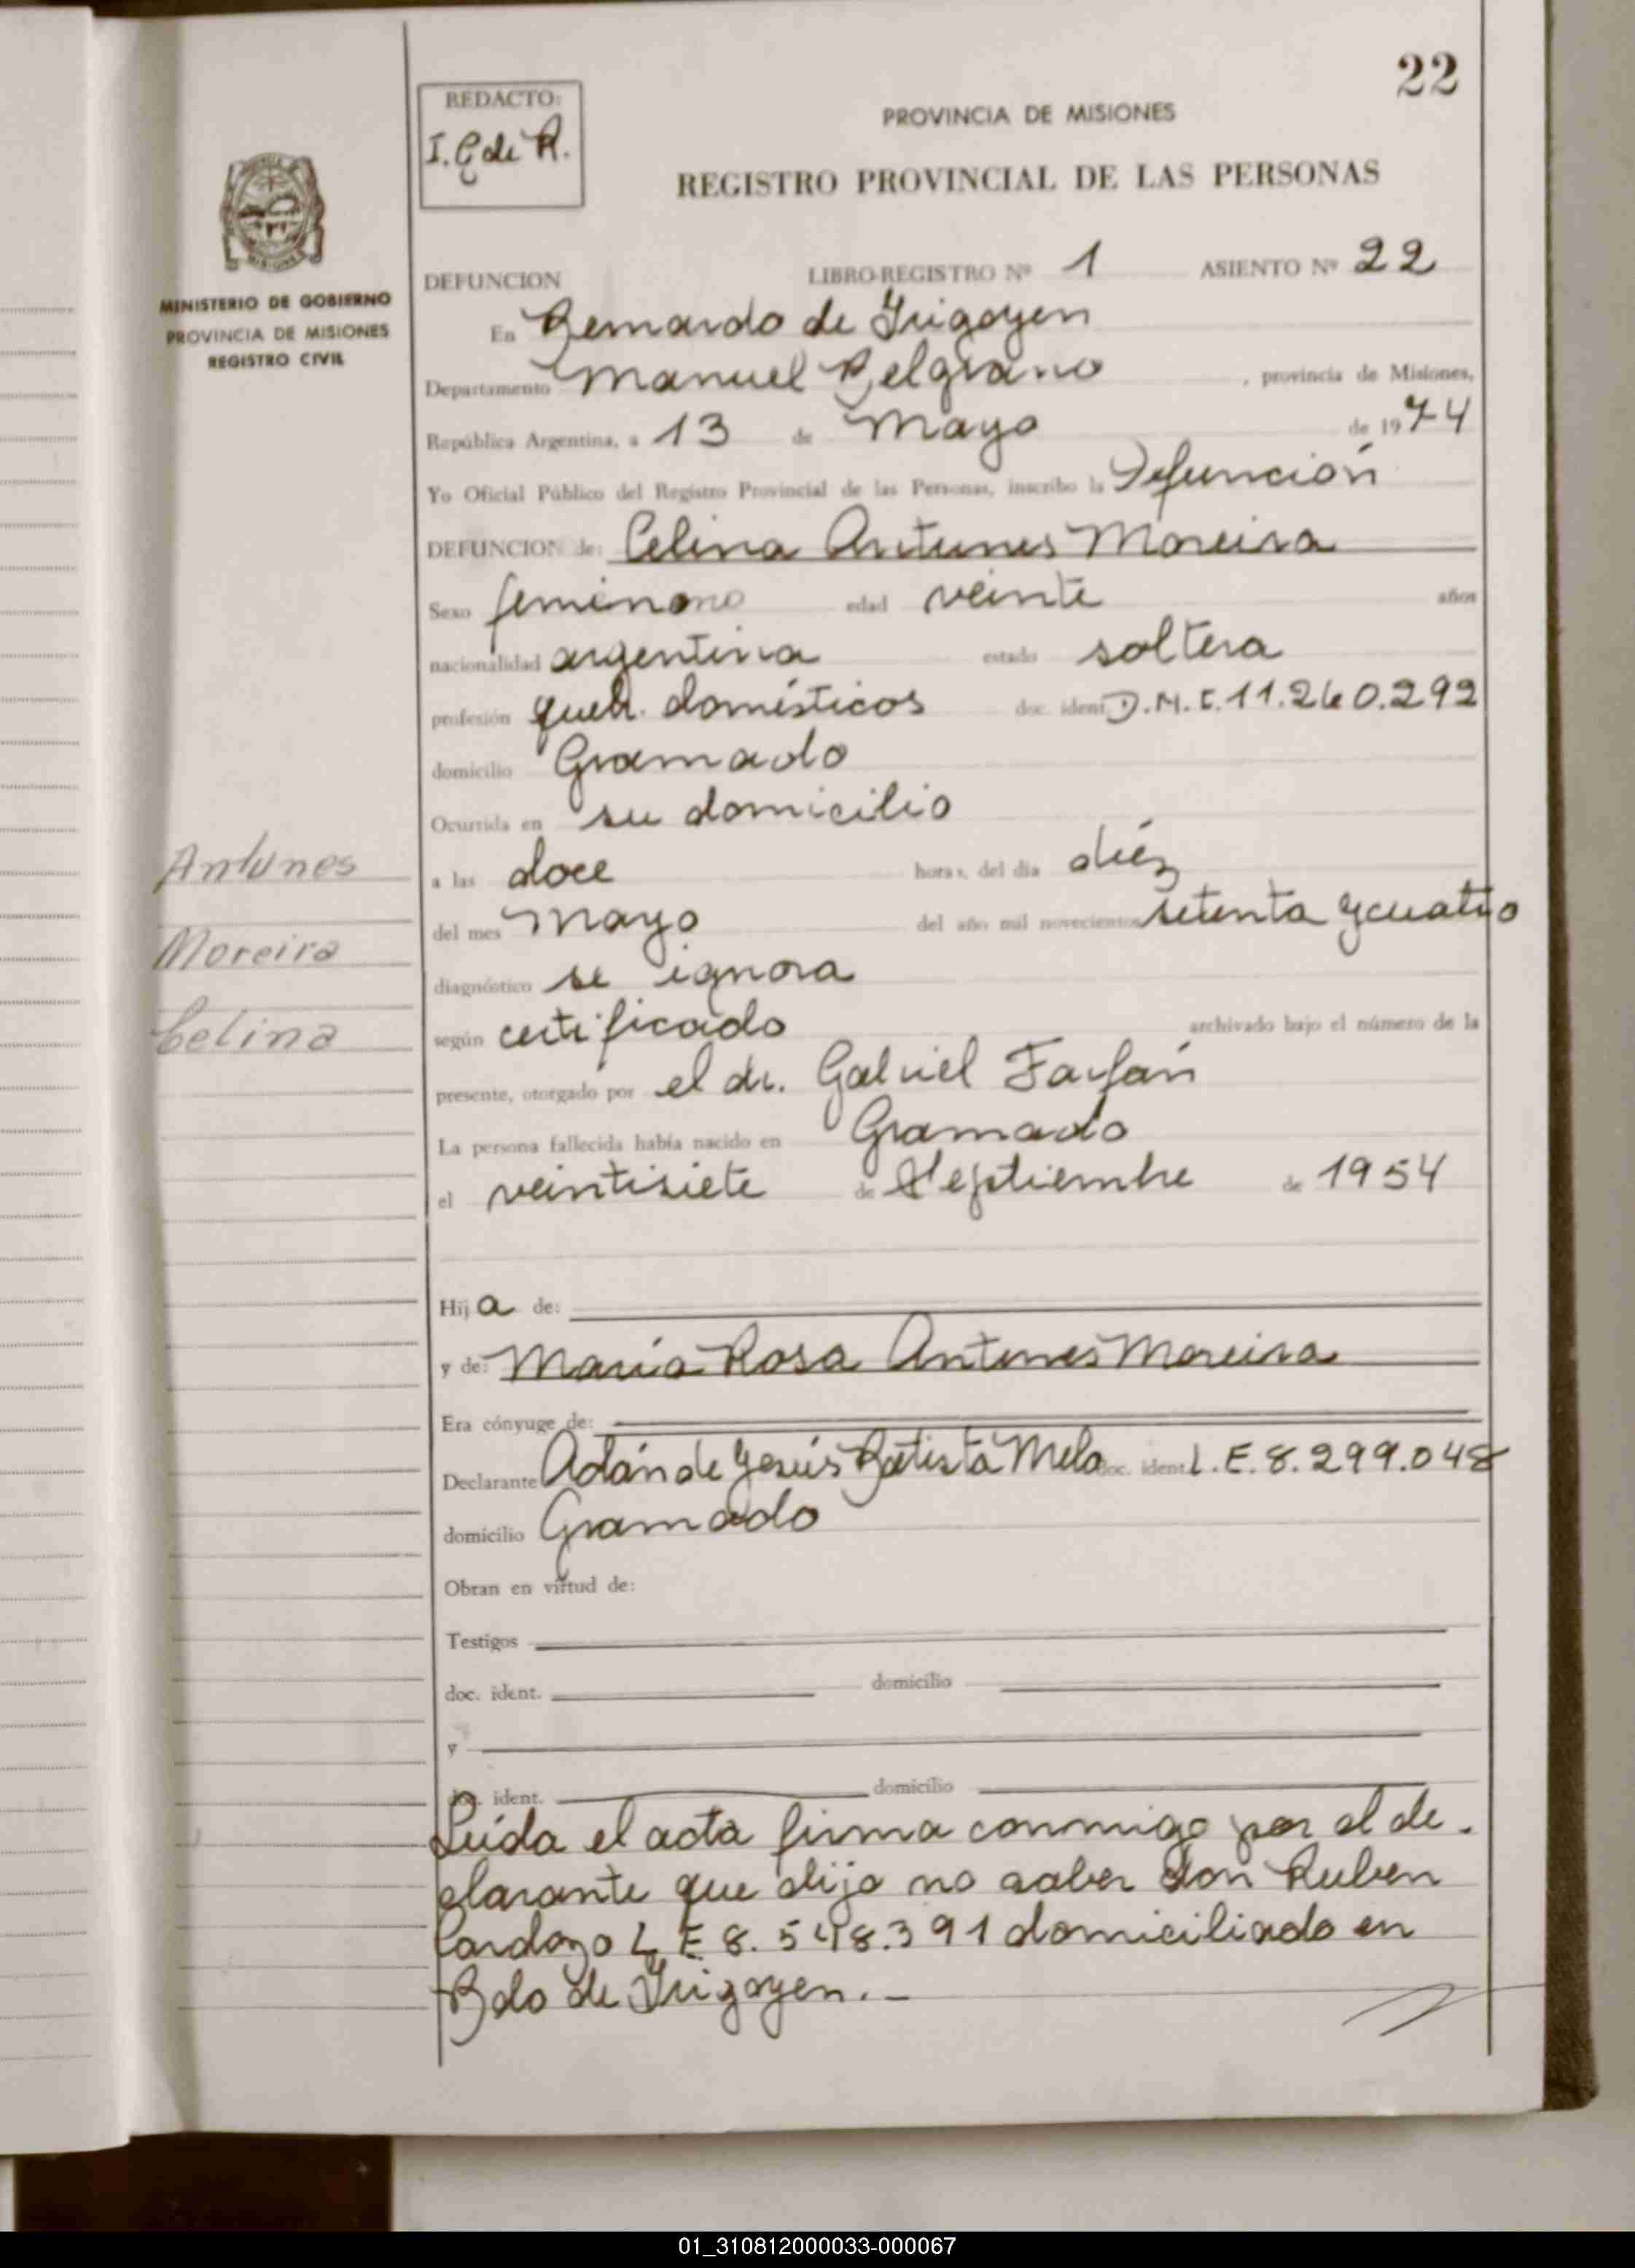 22
REDACTO:
I. G de R.
PROVINCIA DE MISIONES
REGISTRO PROVINCIAL DE LAS PERSONAS
MINISTERIO DE GOBIERNO
PROVINCIA DE MISIONES
REGISTRO CIVIL
DEFUNCION LIBRO-REGISTRO Nº 1 ASIENTO Nº 22
En Bernardo de Irigoyen
Departamento Manuel Belgrano, provincia de Misiones,
República Argentina, a 13 de Mayo de 1974
Yo Oficial Público del Registro Provincial de las Personas, inscribo la Defunción
DEFUNCION de: Celina Antunes Moreira
Sexo femenino edad veinte años
nacionalidad argentina estado soltera
profesión queh. domésticos doc. ident. D.N.I. 11.260.292
domicilio Gramado
Ocurrida en su domicilio
a las doce horas, del día diéz
del mes Mayo del año mil novecientos setenta y cuatro
diagnóstico se ignora
según certificado archivado bajo el número de la
presente, otorgado por el dr. Gabriel Farfán
La persona fallecida había nacido en Gramado
el veintisiete de Septiembre de 1954
Antunes
Moreira
Celina
Hija de:
y de: María Rosa Antunes Moreira
Era cónyuge de:
Declarante Adán de Jesús Batista Melo doc. ident. L.E. 8.299.048
domicilio Gramado
Obran en virtud de:
Testigos
doc. ident. domicilio
y
doc. ident. domicilio
Leída el acta firma conmigo por el de-
clarante que dijo no saber don Ruben
Cardozo L E 8.548.391 domiciliado en
Bdo de Irigoyen.-
01_310812000033-000067